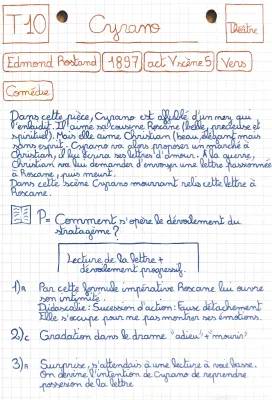 T10
Cyrano
Théâtre
Edmond Rostand
1897
act V scène 5
Vers
Comédie
Dans cette pièce, Cyrano est affublé d'un nez, qui
l'enlaidit. Il aime sa cousine Roxane (belle, précieuse et
spirituel). Mais elle aime Christian (beau, élégant mais
sans esprit. Cyrano va alors proposer un marché à
Christian, il lui écrira ses lettres d'amour. A la guerre,
Christian va lui demander d'envoyer une lettre passionnée
à Roxane, puis meurt.
Dans cette scène Cyrano mourrant relis cette lettre à
Roxane.
P= Comment s'opère le dévoilement du
stratagème ?
Lecture de la lettre +
dévoilement progressif.
1)A Par cette formule impérative Roxane lui ouvre
son intimité.
Didascalie: Sucession d'action: Fausse détachement
Elle s'occupe pour ne pas montrer ses émotions.
2)C Gradation dans le drame "adieu"+"mourir"
3)A Surprise, s'attendais à une lecture à voix basse.
On devine l'intention de Cyrano de reprendre
possesion de la lettre